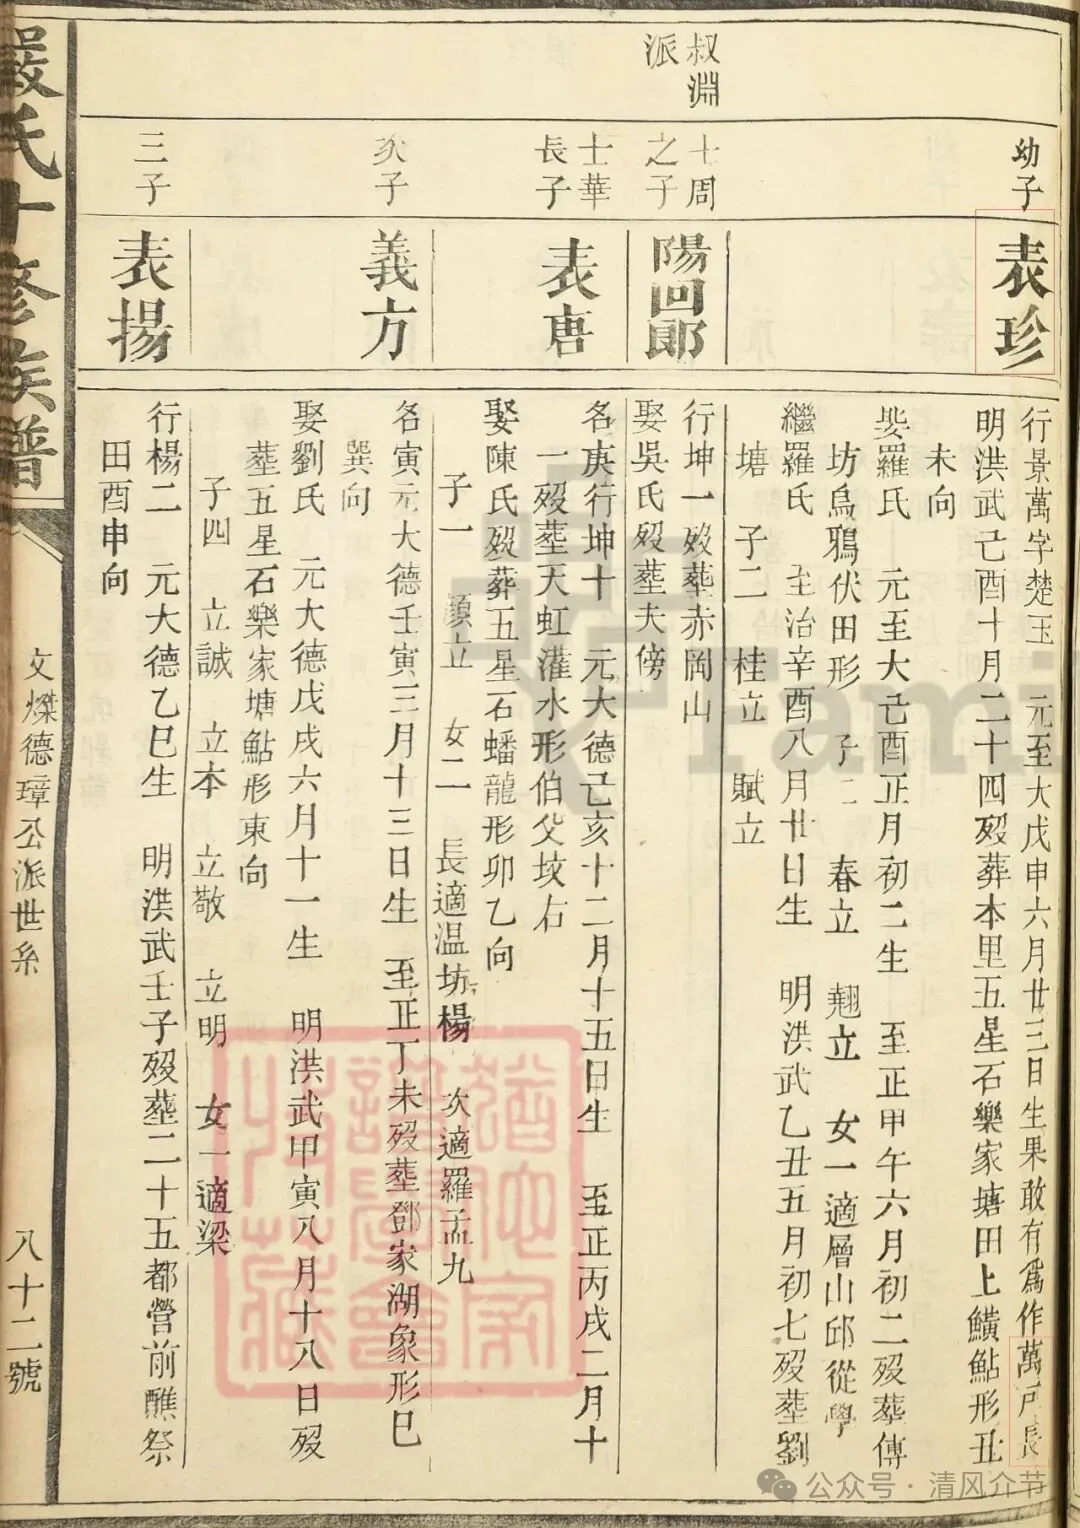 叔淵
派
幼子
士周
之子
士華
長子
次子
三子
表珍
陽回郎
表唐
義方
表揚
行景萬字楚玉 元至大戊申六月廿三日生果敢有爲作萬戸長
明洪武己酉十月二十四歿葬本里五星石樂家塘田上鱑鮎形丑
未向
娶羅氏 元至大己酉正月初二生 至正甲午六月初二歿葬傅
坊烏鴉伏田形 子二 春立 翹立 女一適層山邱從學
繼羅氏 至治辛酉八月廿日生 明洪武乙丑五月初七歿葬劉
塘 子二 桂立 賦立
行坤一歿葬赤岡山
娶吳氏歿葬夫傍
名庚行坤十 元大德己亥十二月十五日生 至正丙戌二月十
一歿葬天虹灌水形伯父坟右
娶陳氏歿葬五星石蟠龍形卯乙向
子一 顏立 女二 長適温坊楊 次適羅孟九
名寅元大德壬寅三月十三日生 至正丁未歿葬鄧家湖象形巳
巽向
娶劉氏 元大德戊戌六月十一生 明洪武甲寅八月十八日歿
葬五星石樂家塘鮎形東向
子四 立誠 立本 立敬 立明 女一適梁
行楊二 元大德乙巳生 明洪武壬子歿葬二十五都營前醮祭
田酉申向
嚴氏十修族譜
文燦德璋公派世系
八十二號
fami
公众号·清风介节